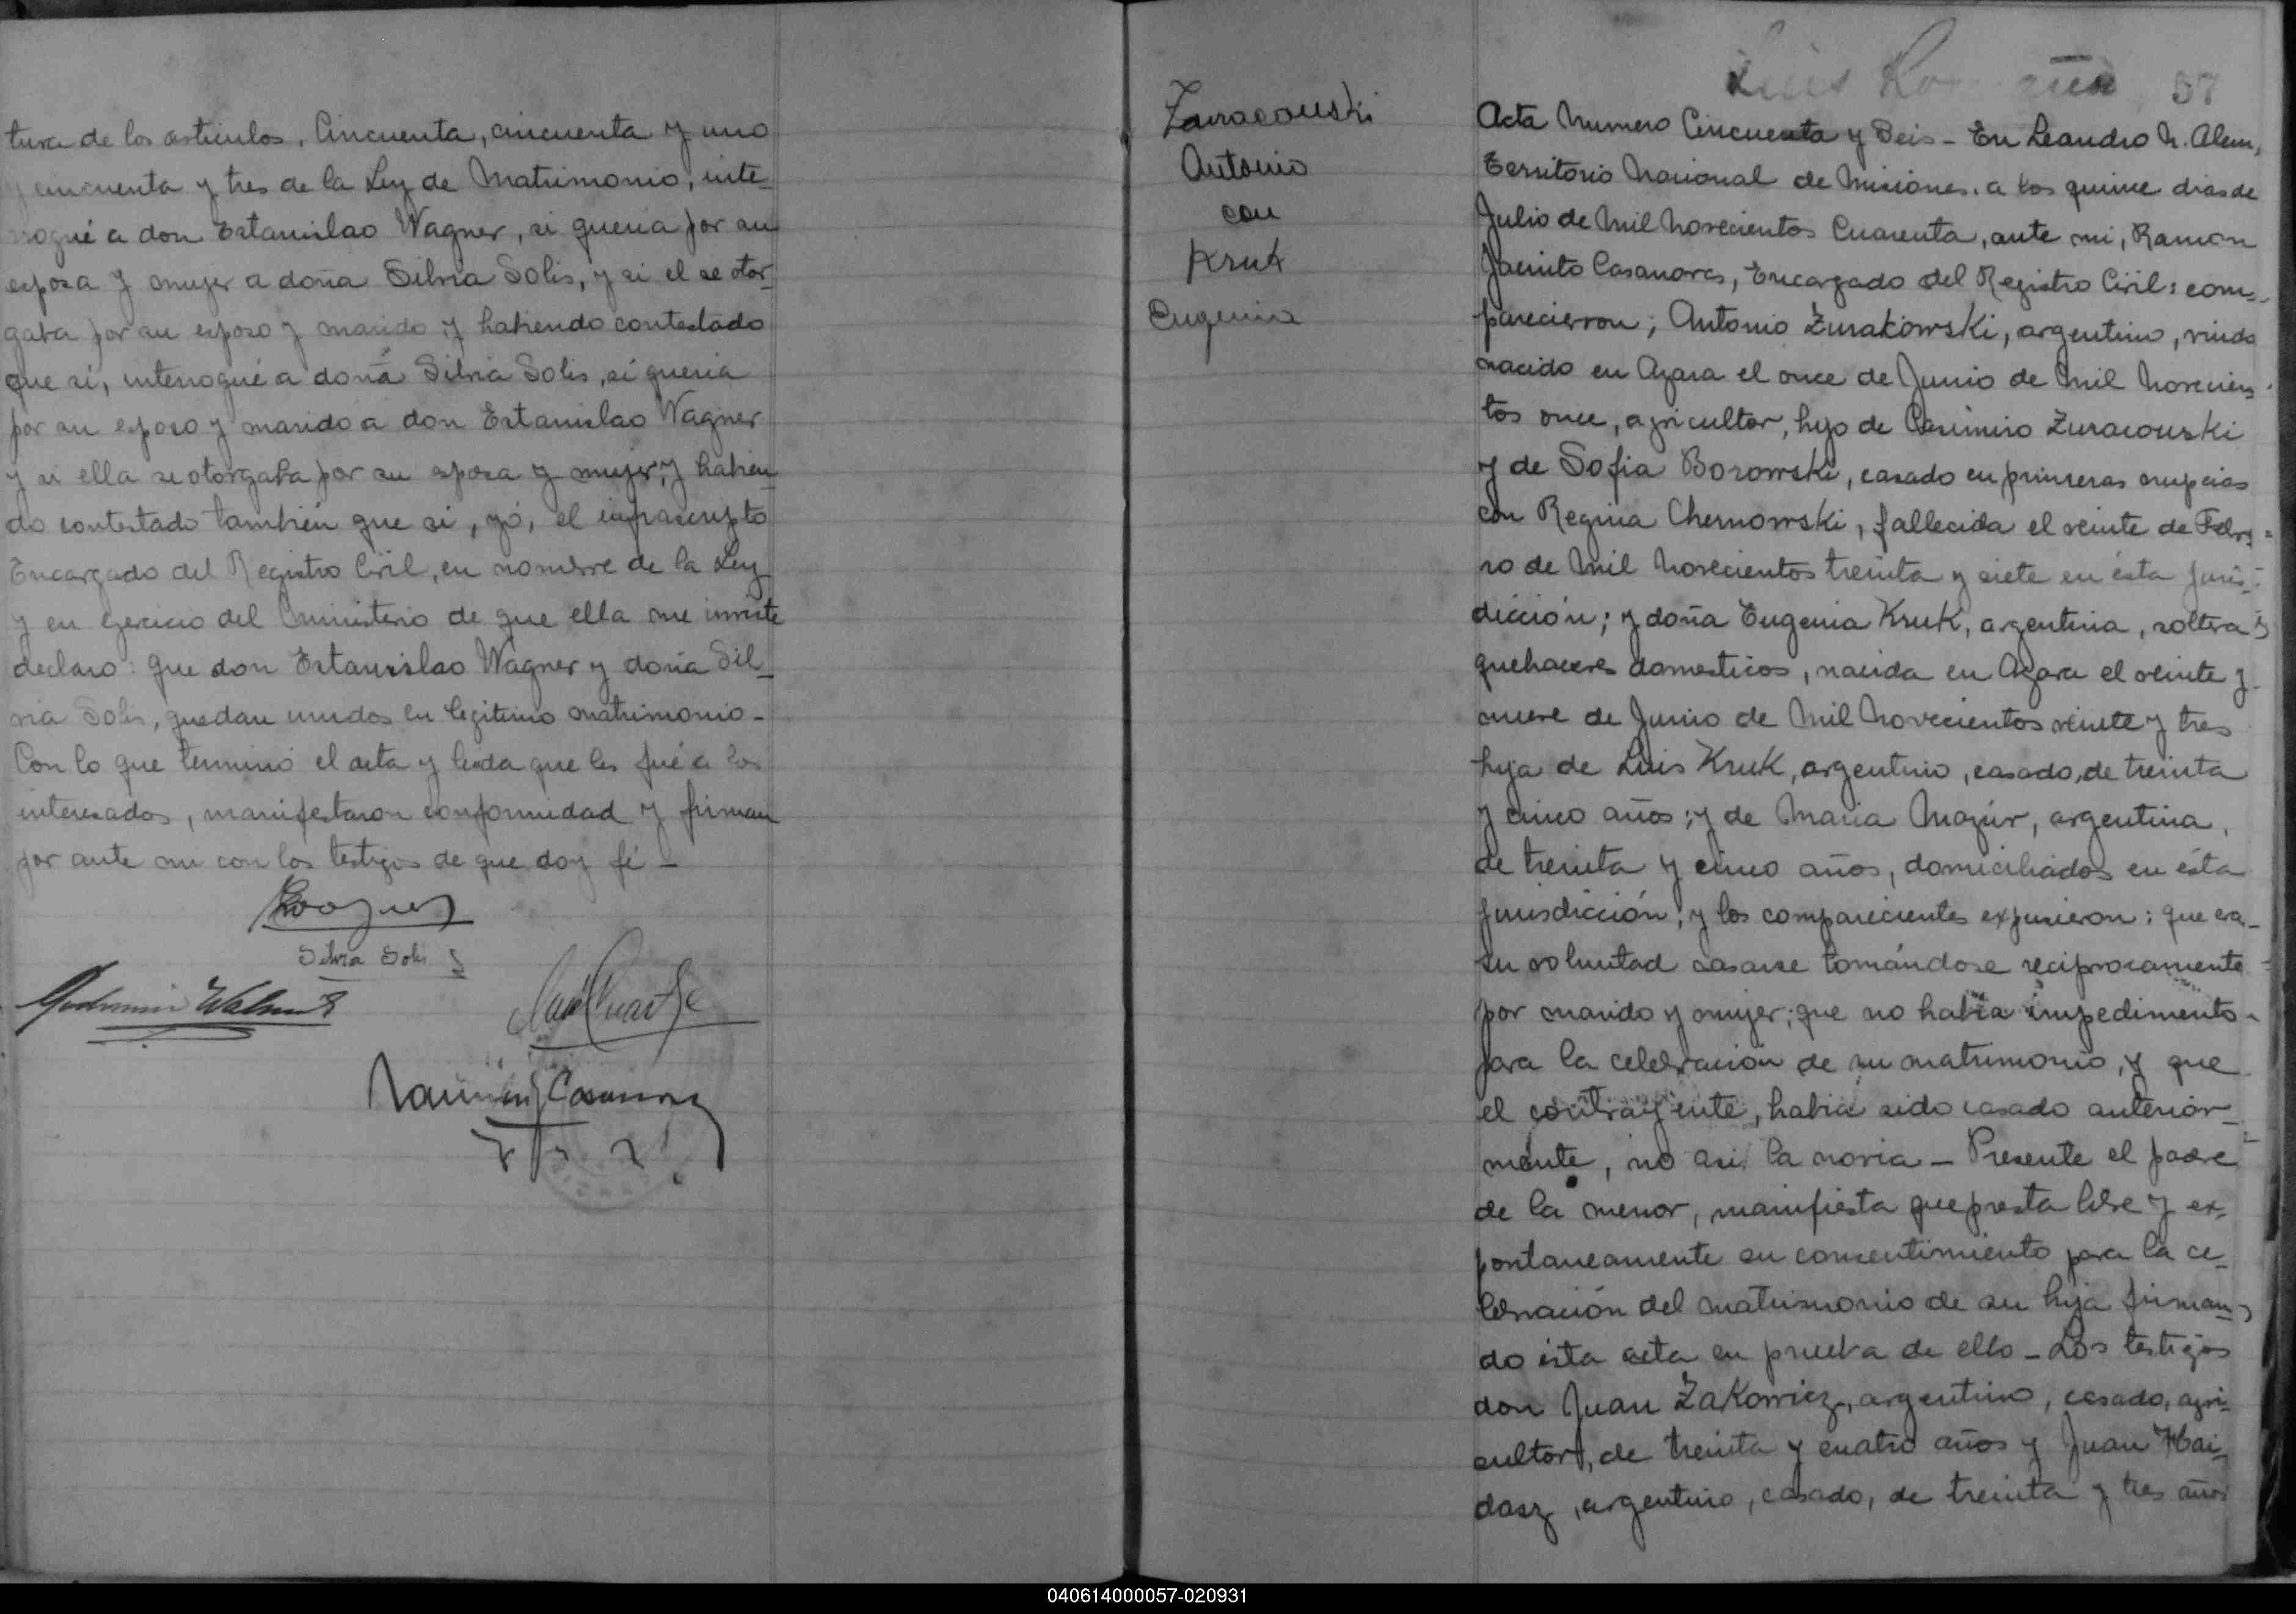 tura de los articulos, Cincuenta, cincuenta y uno
y cincuenta y tres de la Ley de Matrimonio, inte-
rrogué a don Estanislao Wagner, si queria por su
esposa y mujer a doña Silvia Solis, y si el se otor-
gaba por su esposo y marido y habiendo contestado
que si, interrogué a doña Silvia Solis, si queria
por su esposo y marido a don Estanislao Wagner
y si ella se otorgaba por su esposa y mujer, y habien-
do contestado también que si, yó, el infrascripto
Encargado del Registro Civil, en nombre de la Ley
y en ejercicio del Ministerio de que ella me inviste
declaro: que don Estanislao Wagner y doña Sil-
via Solis, quedan unidos en legitimo matrimonio -
Con lo que terminó el acta y leida que les fué a los
interesados, manifestaron conformidad y firman
por ante mi con los testigos de que doy fé -
Silvia Solis
57
Zuracouski
Antonio
con
Kruk
Eugenia
Acta Numero Cincuenta y Seis - En Leandro N. Alem,
Territorio Nacional de Misiones, a los quince dias de
Julio de Mil Novecientos Cuarenta, ante mi, Ramon
Jacinto Casanova, Encargado del Registro Civil: com-
parecierron; Antonio Żurakowski, argentino, viudo
nacido en Azara el once de Junio de Mil Novecien-
tos once, agricultor, hijo de Casimiro Zuracouski
y de Sofia Borowski, casado en primeras nupcias
con Regina Chernowski, fallecida el veinte de Febre-
ro de Mil Novecientos treinta y siete en ésta juris-
dicción; y doña Eugenia Kruk, argentina, soltera
quehaceres domesticos, nacida en Azara el veinte y
nueve de Junio de Mil Novecientos veinte y tres
hija de Luis Kruk, argentino, casado, de treinta
y cinco años; y de Maria Mazúr, argentina,
de treinta y cinco años, domiciliados en ésta
jurisdicción; y los comparecientes expusieron: que era
su voluntad casarse tomándose reciprocamente
por marido y mujer; que no habia impedimento
para la celebración de su matrimonio, y que
el contrayente, habia sido casado anterior-
mente, no asi la novia - Presente el padre
de la menor, manifiesta que presta libre y es-
pontaneamente su consentimiento para la ce-
lebración del matrimonio de su hija firman-
do ésta acta en prueba de ello - Los testigos
don Juan Żakowicz, argentino, casado, agri-
cultor, de treinta y cuatro años y Juan Hai-
dasz, argentino, casado, de treinta y tres años
040614000057-020931